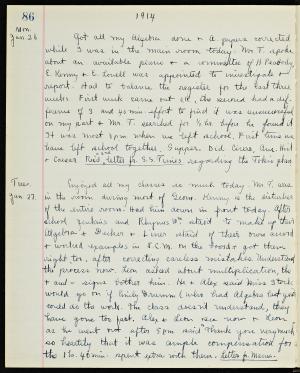 86
1914
Mon.
Jan 26
Got all my Algebra done & A papers corrected
while I was in the main room today. Mr. T. spoke
about an available piano & a committee of H Peabody
E. Kenny & E. Lovell was appointed to investigate &
report. Had to balance the register for the last three
weeks. First week came out all, the second had a dif-
ference of 3 and 45 min. effort to find it was unsuccessful
on my part & Mr. T. searched for ½ hr. before he found it
It was most 5 pm when we left school. First time we
have left school together. Supper. Did Ceres,
& Caesar. Rec'd letter fr. S.S. Times regarding the Token plan
Tues.
Jan 27.
Enjoyed all my classes so much today. Mr. T. was
in the room during most of Geom. Leon is the disturber
of the entire room. Had him down in front today. After
school Jenkins and stayed to make up their
Algebra & Decker & of their own accord
& worked examples in L.C.M. on the board & got them
right too, after correcting careless mistakes. Understand
the process now. Leon asked about multiplication, the
+ and - signs bother him. He & Alex said Miss York
would go on if Emily Drummond who had Algebra but you
could do the work. The class didn't understand, they
have gone too fast. Alex & Leon see now & Leon
as he went out after 5 pm said "Thank you very much"
so heartily that it was ample compensation for
the 1 hr. 40 min. spent extra with them. Letter fr. Mama.